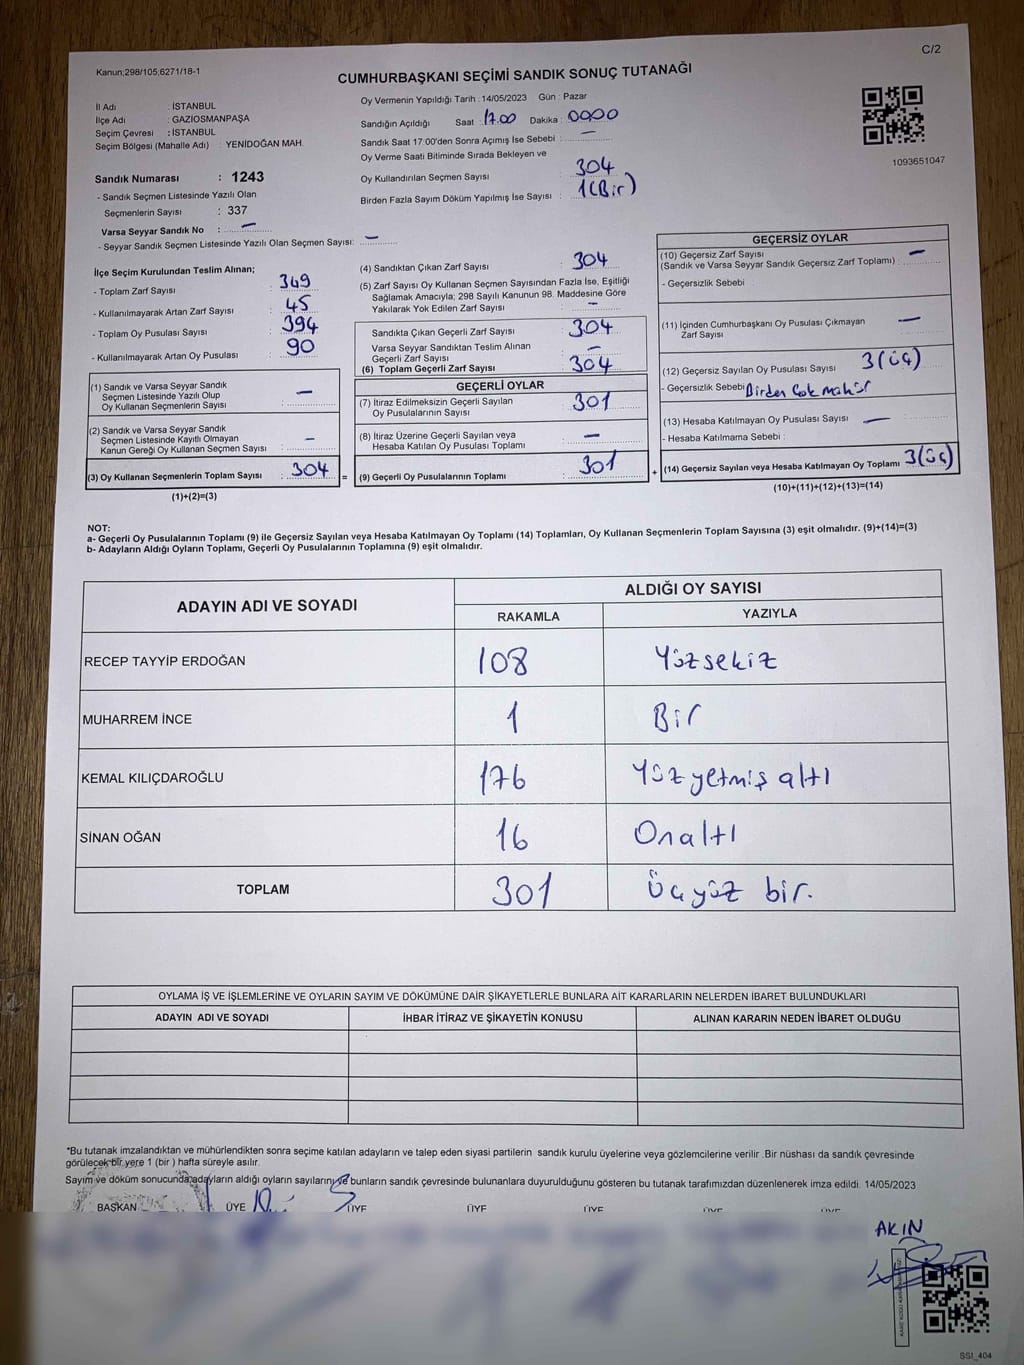 C/2
Kanun;298/105;6271/18-1
CUMHURBAŞKANI SEÇİMİ SANDIK SONUÇ TUTANAĞI
İl Adı : İSTANBUL
İlçe Adı : GAZİOSMANPAŞA
Seçim Çevresi : İSTANBUL
Seçim Bölgesi (Mahalle Adı) : YENİDOĞAN MAH.
Sandık Numarası : 1243
- Sandık Seçmen Listesinde Yazılı Olan
Seçmenlerin Sayısı : 337
Varsa Seyyar Sandık No : —
- Seyyar Sandık Seçmen Listesinde Yazılı Olan Seçmen Sayısı: —
Oy Vermenin Yapıldığı Tarih : 14/05/2023 Gün : Pazar
Sandığın Açıldığı Saat : 17.00 Dakika : 0000
Sandık Saat 17:00'den Sonra Açımış İse Sebebi : —
Oy Verme Saati Bitiminde Sırada Bekleyen ve
Oy Kullandırılan Seçmen Sayısı : 304
Birden Fazla Sayım Döküm Yapılmış İse Sayısı : 1(Bir)
1093651047
İlçe Seçim Kurulundan Teslim Alınan;
- Toplam Zarf Sayısı : 349
- Kullanılmayarak Artan Zarf Sayısı : 45
- Toplam Oy Pusulası Sayısı : 394
- Kullanılmayarak Artan Oy Pusulası : 90
(1) Sandık ve Varsa Seyyar Sandık
Seçmen Listesinde Yazılı Olup
Oy Kullanan Seçmenlerin Sayısı : —
(2) Sandık ve Varsa Seyyar Sandık
Seçmen Listesinde Kayıtlı Olmayan
Kanun Gereği Oy Kullanan Seçmen Sayısı : —
(3) Oy Kullanan Seçmenlerin Toplam Sayısı : 304 =
(1)+(2)=(3)
(4) Sandıktan Çıkan Zarf Sayısı : 304
(5) Zarf Sayısı Oy Kullanan Seçmen Sayısından Fazla İse, Eşitliği
Sağlamak Amacıyla; 298 Sayılı Kanunun 98. Maddesine Göre
Yakılarak Yok Edilen Zarf Sayısı : —
Sandıkta Çıkan Geçerli Zarf Sayısı : 304
Varsa Seyyar Sandıktan Teslim Alınan
Geçerli Zarf Sayısı : —
(6) Toplam Geçerli Zarf Sayısı : 304
GEÇERLİ OYLAR
(7) İtiraz Edilmeksizin Geçerli Sayılan
Oy Pusulalarının Sayısı : 301
(8) İtiraz Üzerine Geçerli Sayılan veya
Hesaba Katılan Oy Pusulası Toplamı : —
(9) Geçerli Oy Pusulalarının Toplamı : 301 +
GEÇERSİZ OYLAR
(10) Geçersiz Zarf Sayısı
(Sandık ve Varsa Seyyar Sandık Geçersiz Zarf Toplamı) : —
- Geçersizlik Sebebi :
(11) İçinden Cumhurbaşkanı Oy Pusulası Çıkmayan
Zarf Sayısı : —
(12) Geçersiz Sayılan Oy Pusulası Sayısı : 3(üç)
- Geçersizlik Sebebi : Birden Çok mühür
(13) Hesaba Katılmayan Oy Pusulası Sayısı : —
- Hesaba Katılmama Sebebi :
(14) Geçersiz Sayılan veya Hesaba Katılmayan Oy Toplamı : 3(üç)
(10)+(11)+(12)+(13)=(14)
NOT:
a- Geçerli Oy Pusulalarının Toplamı (9) ile Geçersiz Sayılan veya Hesaba Katılmayan Oy Toplamı (14) Toplamları, Oy Kullanan Seçmenlerin Toplam Sayısına (3) eşit olmalıdır. (9)+(14)=(3)
b- Adayların Aldığı Oyların Toplamı, Geçerli Oy Pusulalarının Toplamına (9) eşit olmalıdır.
ADAYIN ADI VE SOYADI
ALDIĞI OY SAYISI
RAKAMLA YAZIYLA
RECEP TAYYİP ERDOĞAN 108 Yüzsekiz
MUHARREM İNCE 1 Bir
KEMAL KILIÇDAROĞLU 176 Yüzyetmiş altı
SİNAN OĞAN 16 Onaltı
TOPLAM 301 Üçyüz bir.
OYLAMA İŞ VE İŞLEMLERİNE VE OYLARIN SAYIM VE DÖKÜMÜNE DAİR ŞİKAYETLERLE BUNLARA AİT KARARLARIN NELERDEN İBARET BULUNDUKLARI
ADAYIN ADI VE SOYADI İHBAR İTİRAZ VE ŞİKAYETİN KONUSU ALINAN KARARIN NEDEN İBARET OLDUĞU
*Bu tutanak imzalandıktan ve mühürlendikten sonra seçime katılan adayların ve talep eden siyasi partilerin sandık kurulu üyelerine veya gözlemcilerine verilir .Bir nüshası da sandık çevresinde
görülecek bir yere 1 (bir ) hafta süreyle asılır.
Sayım ve döküm sonucunda adayların aldığı oyların sayılarını ve bunların sandık çevresinde bulunanlara duyurulduğunu gösteren bu tutanak tarafımızdan düzenlenerek imza edildi. 14/05/2023
BAŞKAN ÜYE ÜYE ÜYE ÜYE ÜYE ÜYE
AKIN
SSI_404